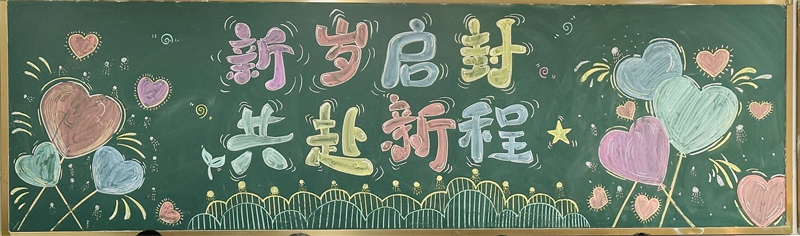 新岁启封
共赴新程